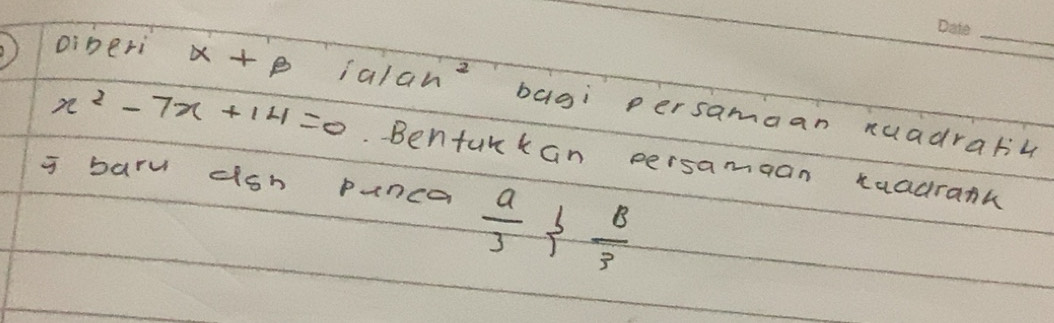 Date
Diberi α + β ialah² bagi persamaan kuadratik
x² - 7x + 14 = 0. Bentukkan persamaan kuadratik
baru dgn punca a/3 & β/3